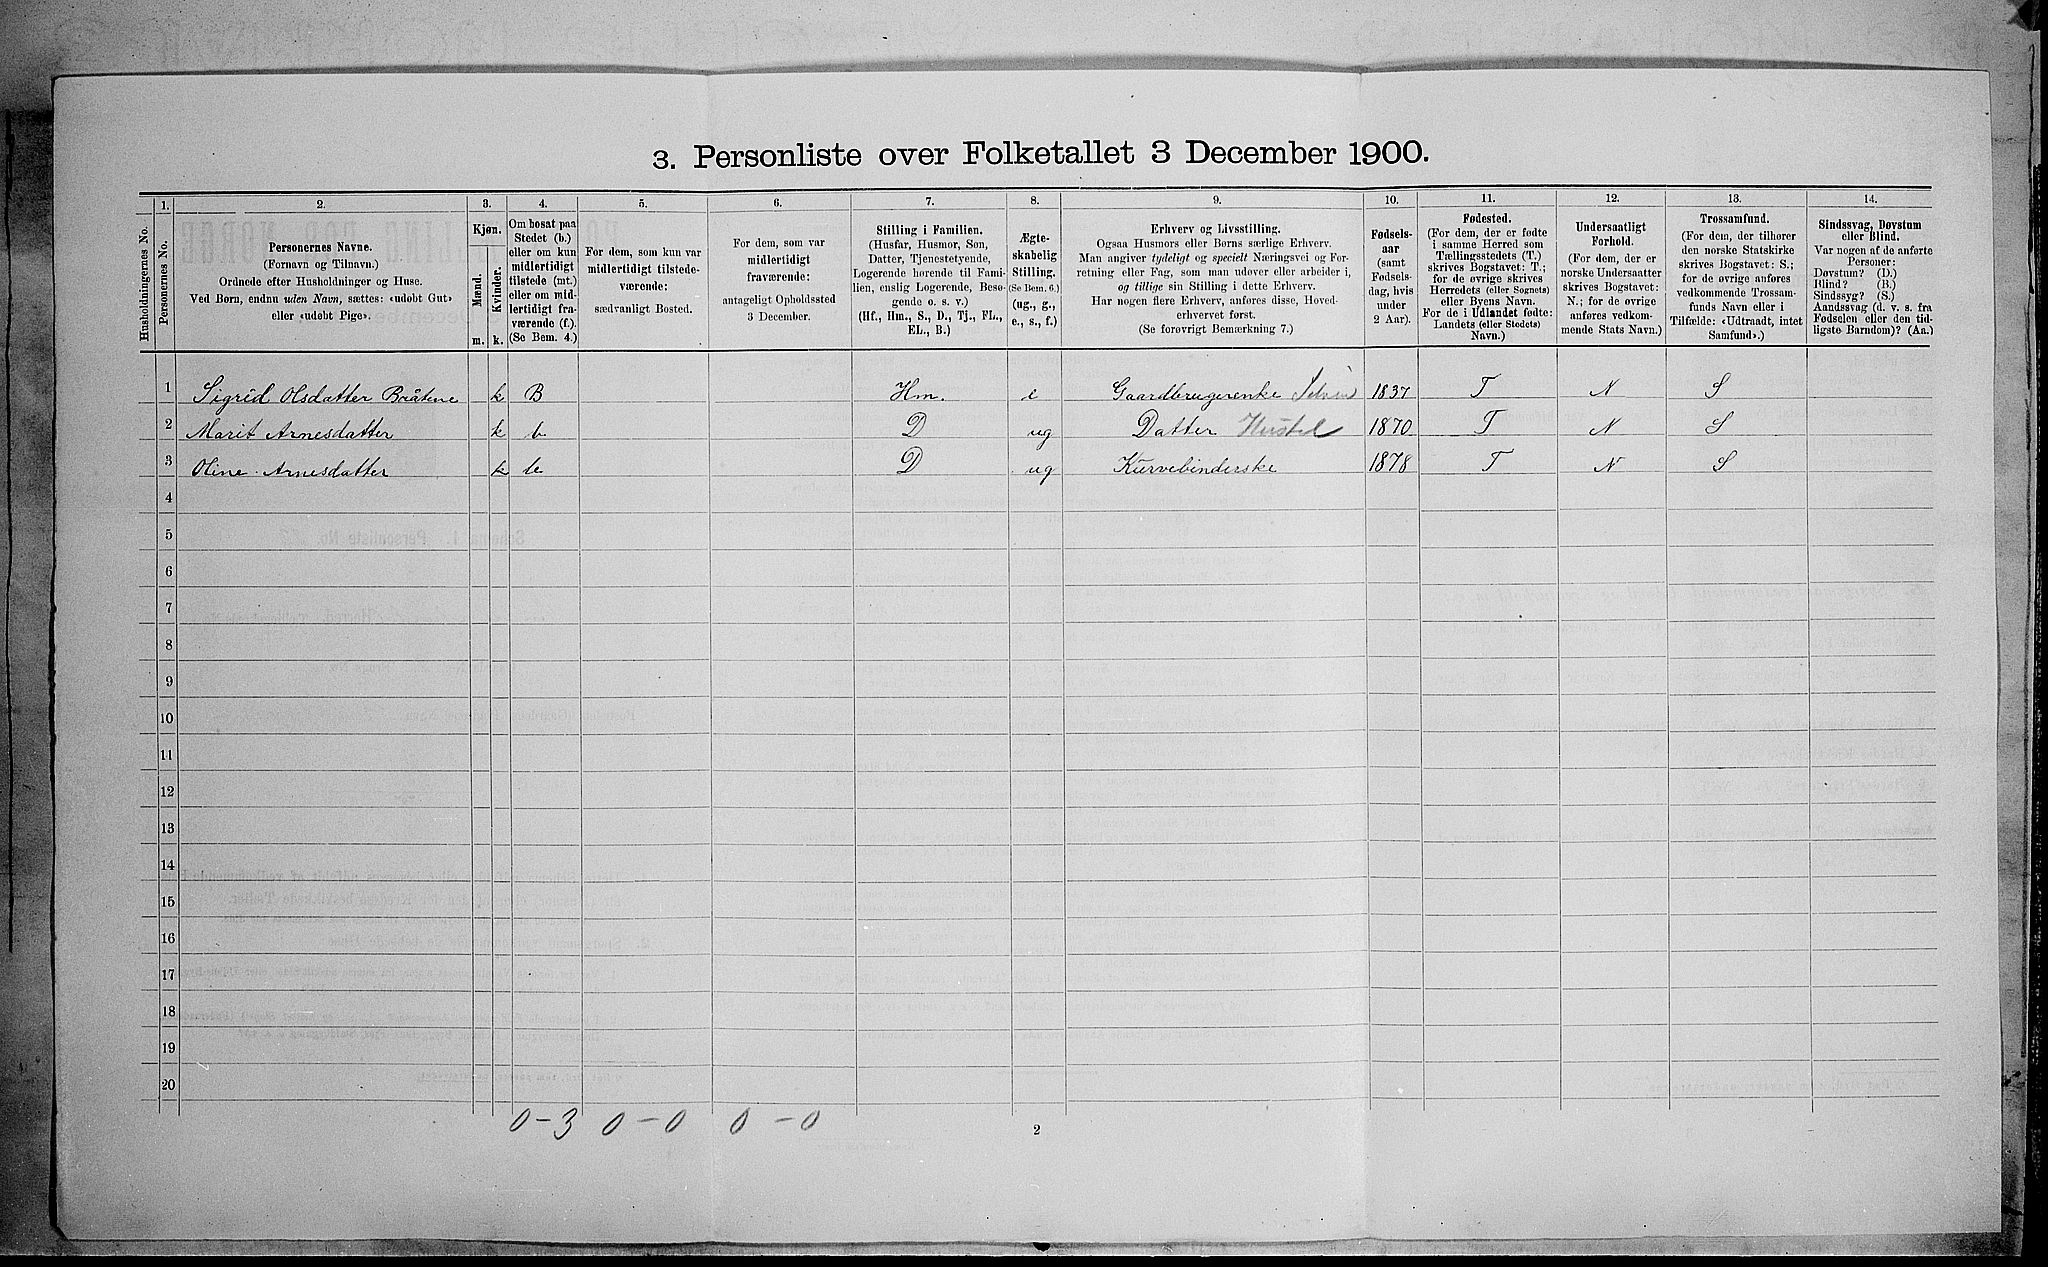 3. Personliste over Folketallet 3 December 1900.
Husholdningernes No.
1.
Personernes No.
2.
Personernes Navne.
(Fornavn og Tilnavn.)
Ordnede efter Husholdninger og Huse.
Ved Børn, endnu uden Navn, sættes: «udøbt Gut»
eller «udøbt Pige».
3.
Kjøn.
Mænd.
Kvinder.
m. k.
4.
Om bosat paa
Stedet (b.)
eller om kun
midlertidigt
tilstede (mt.)
eller om mid-
lertidigt fra-
værende (f.).
(Se Bem. 4.)
5.
For dem, som kun var
midlertidigt tilstede-
værende:
sædvanligt Bosted.
6.
For dem, som var
midlertidigt
fraværende:
antageligt Opholdssted
3 December.
7.
Stilling i Familien.
(Husfar, Husmor, Søn,
Datter, Tjenestetyende,
Logerende hørende til Fami-
lien, enslig Logerende, Besø-
gende o. s. v.)
(Hf., Hm., S., D., Tj., FL.,
EL., B.)
8.
Ægte-
skabelig
Stilling.
(Se Bem. 6.)
(ug., g.,
e., s., f.)
9.
Erhverv og Livsstilling.
Ogsaa Husmors eller Børns særlige Erhverv.
Man angiver tydeligt og specielt Næringsvei og For-
retning eller Fag, som man udøver eller arbeider i,
og tillige sin Stilling i dette Erhverv.
Har nogen flere Erhverv, anføres disse, Hoved-
erhvervet først.
(Se forøvrigt Bemærkning 7.)
10.
Fødsels-
aar
(samt
Fødsels-
dag, hvis
under
2 Aar).
11.
Fødested.
(For dem, der er fødte
i samme Herred som
Tællingsstedets (T.)
skrives Bogstavet: T.;
for de øvrige skrives
Herredets (eller Sognets)
eller Byens Navn.
For de i Udlandet fødte:
Landets (eller Stedets)
Navn.)
12.
Undersaatligt
Forhold.
(For dem, der er
norske Undersaatter
skrives Bogstavet:
N.; for de øvrige
anføres vedkom-
mende Stats Navn.)
13.
Trossamfund.
(For dem, der tilhører
den norske Statskirke
skrives Bogstavet: S.;
for de øvrige anføres
vedkommende Trossam-
funds Navn eller i
Tilfælde: «Udtraadt, intet
Samfund».)
14.
Sindssvag, Døvstum
eller Blind.
Var nogen af de anførte
Personer:
Døvstum? (D.)
Blind? (B.)
Sindssyg? (S.)
Aandssvag (d. v. s. fra
Fødselen eller den tid-
ligste Barndom)? (Aa.)
1 Sigrid Olsdatter Bråtene k B Hm. e Gaardbrugerenke 1837 T N S
2 Marit Arnesdatter k b D ug Datter Hustel 1870 T N S
3 Oline Arnesdatter k b D ug Kurvebinderske 1878 T N S
4
5
6
7
8
9
10
11
12
13
14
15
16
17
18
19
20
0-3 0-0 0-0
2